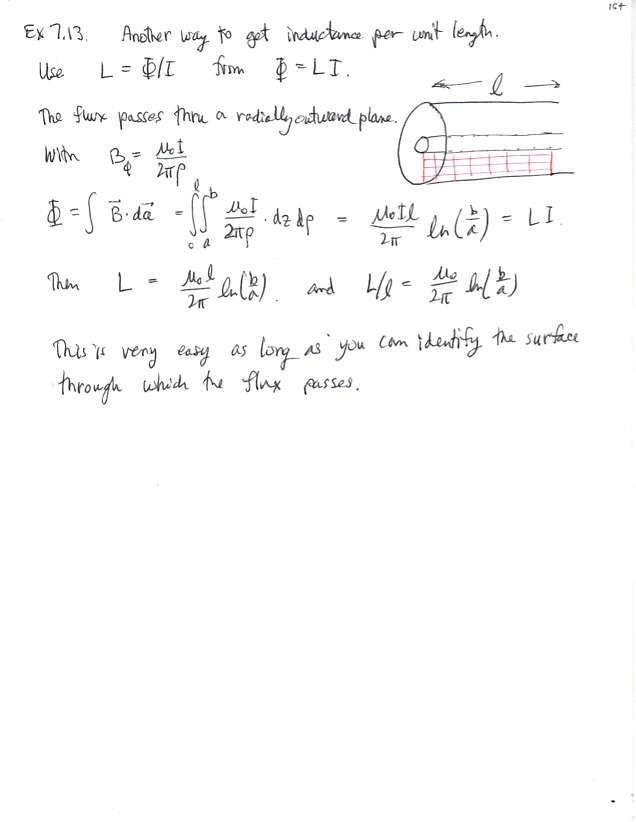 154
Ex 7.13. Another way to get inductance per unit length.
Use L = Φ/I from Φ = LI.
l
The flux passes thru a radially outward plane.
With B_ϕ = μ₀I / 2πρ
Φ = ∫ B⃗·da⃗ = ∫₀^l ∫ₐ^b μ₀I / 2πρ · dz dρ = μ₀Il / 2π ln(b/a) = LI.
Then L = μ₀l / 2π ln(b/a). and L/l = μ₀ / 2π ln(b/a)
This is very easy as long as you can identify the surface
through which the flux passes.